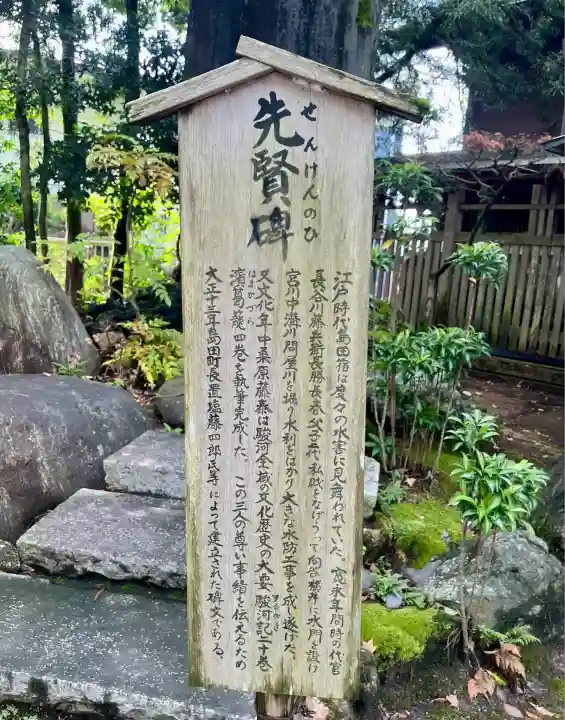 先賢碑
せんけんのひ
江戸時代島田宿は度々の水害に見舞われていた。寛永年間時の代官
長谷川藤兵衛長勝長春父子二代私財をなげうって向谷に水門を設け
宮川中溝川問屋川を堀り水利をはかり大きな水防工事を成し遂げた。
又文化年中桑原藤泰は駿河全域の文化歴史の大要駿河記二十巻
するがき
濱葛籠四巻を執筆完成した。この三人の尊い事績を伝えるため
はまつづら
大正十三年島田町長置塩藤四郎氏等によって建立された碑文である。